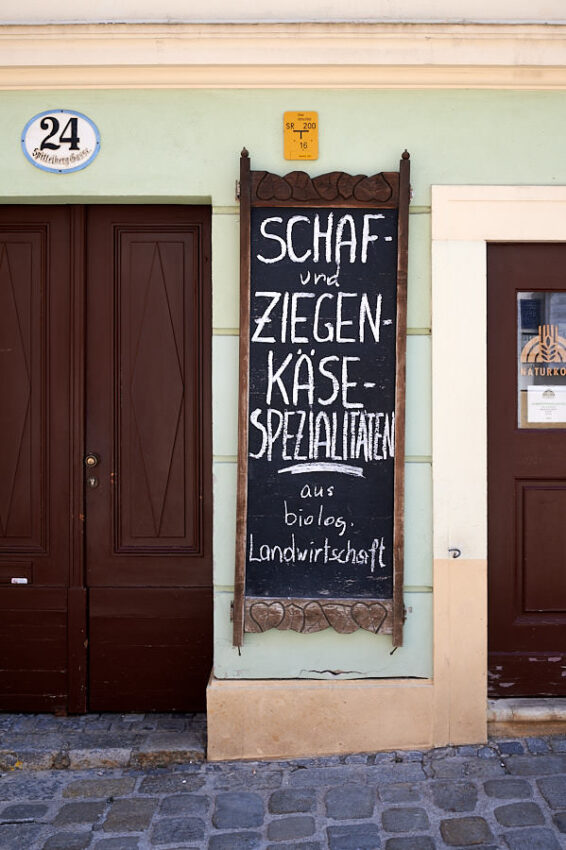 24
Spittelberg Gasse.
SR 200
16
SCHAF-
und
ZIEGEN-
KÄSE-
SPEZIALITÄTEN
aus
biolog.
Landwirtschaft
NATURKO